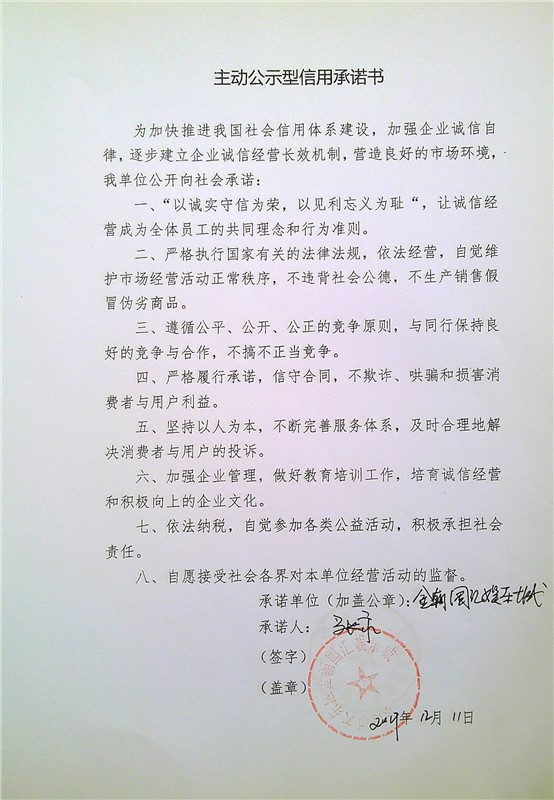 主动公示型信用承诺书
为加快推进我国社会信用体系建设，加强企业诚信自
律，逐步建立企业诚信经营长效机制，营造良好的市场环境，
我单位公开向社会承诺：
一、“以诚实守信为荣，以见利忘义为耻“，让诚信经
营成为全体员工的共同理念和行为准则。
二、严格执行国家有关的法律法规，依法经营，自觉维
护市场经营活动正常秩序，不违背社会公德，不生产销售假
冒伪劣商品。
三、遵循公平、公开、公正的竞争原则，与同行保持良
好的竞争与合作，不搞不正当竞争。
四、严格履行承诺，信守合同，不欺诈、哄骗和损害消
费者与用户利益。
五、坚持以人为本，不断完善服务体系，及时合理地解
决消费者与用户的投诉。
六、加强企业管理，做好教育培训工作，培育诚信经营
和积极向上的企业文化。
七、依法纳税，自觉参加各类公益活动，积极承担社会
责任。
八、自愿接受社会各界对本单位经营活动的监督。
承诺单位（加盖公章）：
承诺人：
（签字）
（盖章）
年 12月 11日